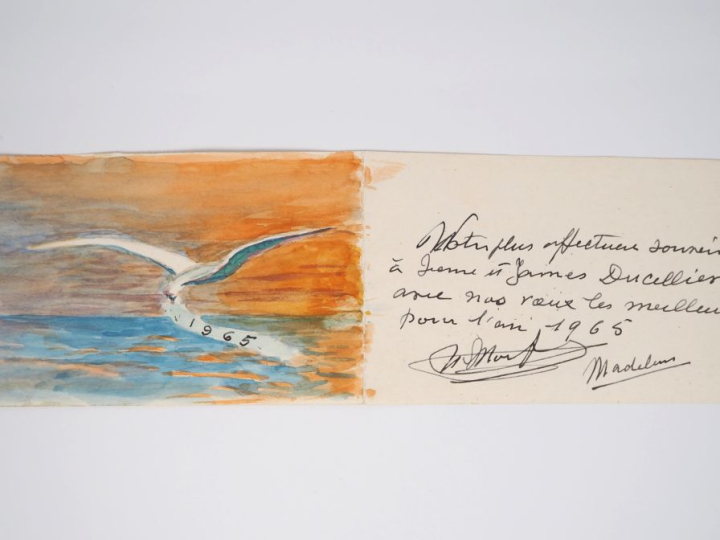 1965
Notre plus affectueux souvenir
à Irène et James Ducellier
avec nos vœux les meilleur
pour l'an 1965
Madeleine